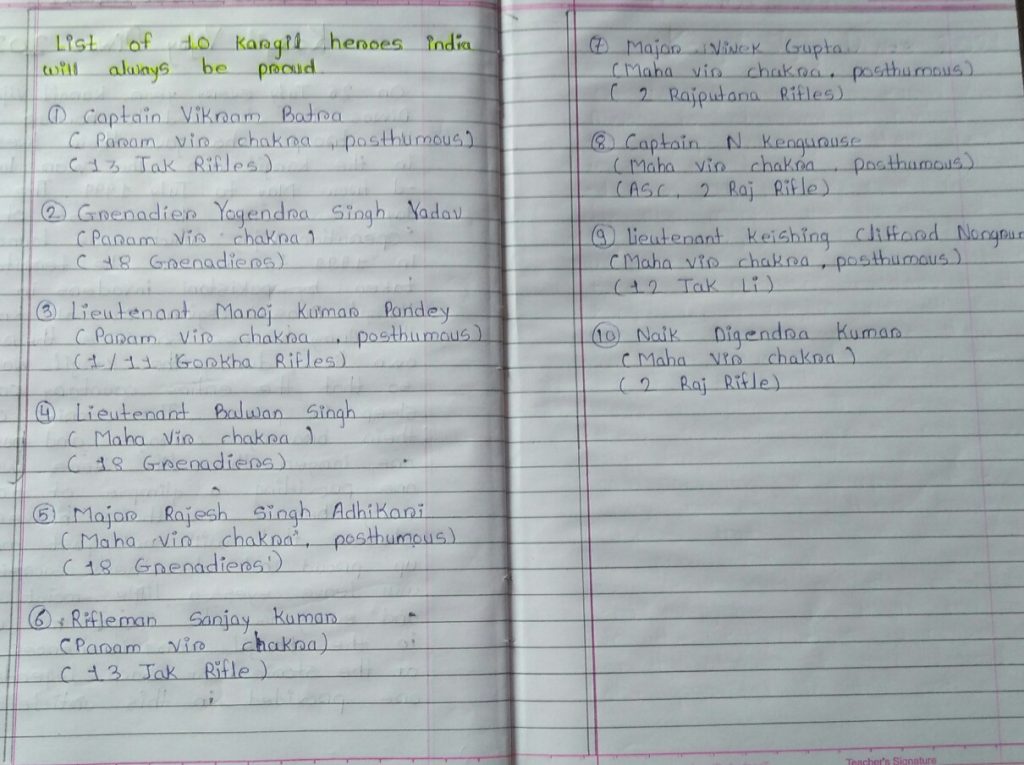 List of 10 Kargil heroes india
will always be proud
① Captain Vikram Batra
( Param vir chakra , posthumous)
( 13 Jak Rifles )
② Grenadier Yogendra Singh Yadav
( Param Vir chakra )
( 18 Grenadiers)
③ Lieutenant Manoj Kumar Pandey
( Param Vir chakra , posthumous)
( 1/11 Gorkha Rifles)
④ Lieutenant Balwan Singh
( Maha Vir chakra )
( 18 Grenadiers)
⑤ Major Rajesh Singh Adhikari
( Maha Vir chakra , posthumous)
( 18 Grenadiers )
⑥ Rifleman Sanjay Kumar
(Param Vir chakra)
( 13 Jak Rifle )
⑦ Major Vivek Gupta
(Maha vir chakra , posthumous)
( 2 Rajputana Rifles)
⑧ Captain N Kengurouse
(Maha vir chakra , posthumous)
(ASC, 2 Raj Rifle)
⑨ Lieutenant Keishing Clifford Nongrur
(Maha vir chakra , posthumous)
( 12 Jak Li )
⑩ Naik Digendra Kumar
(Maha vir chakra )
( 2 Raj Rifle)
Teacher's Signature